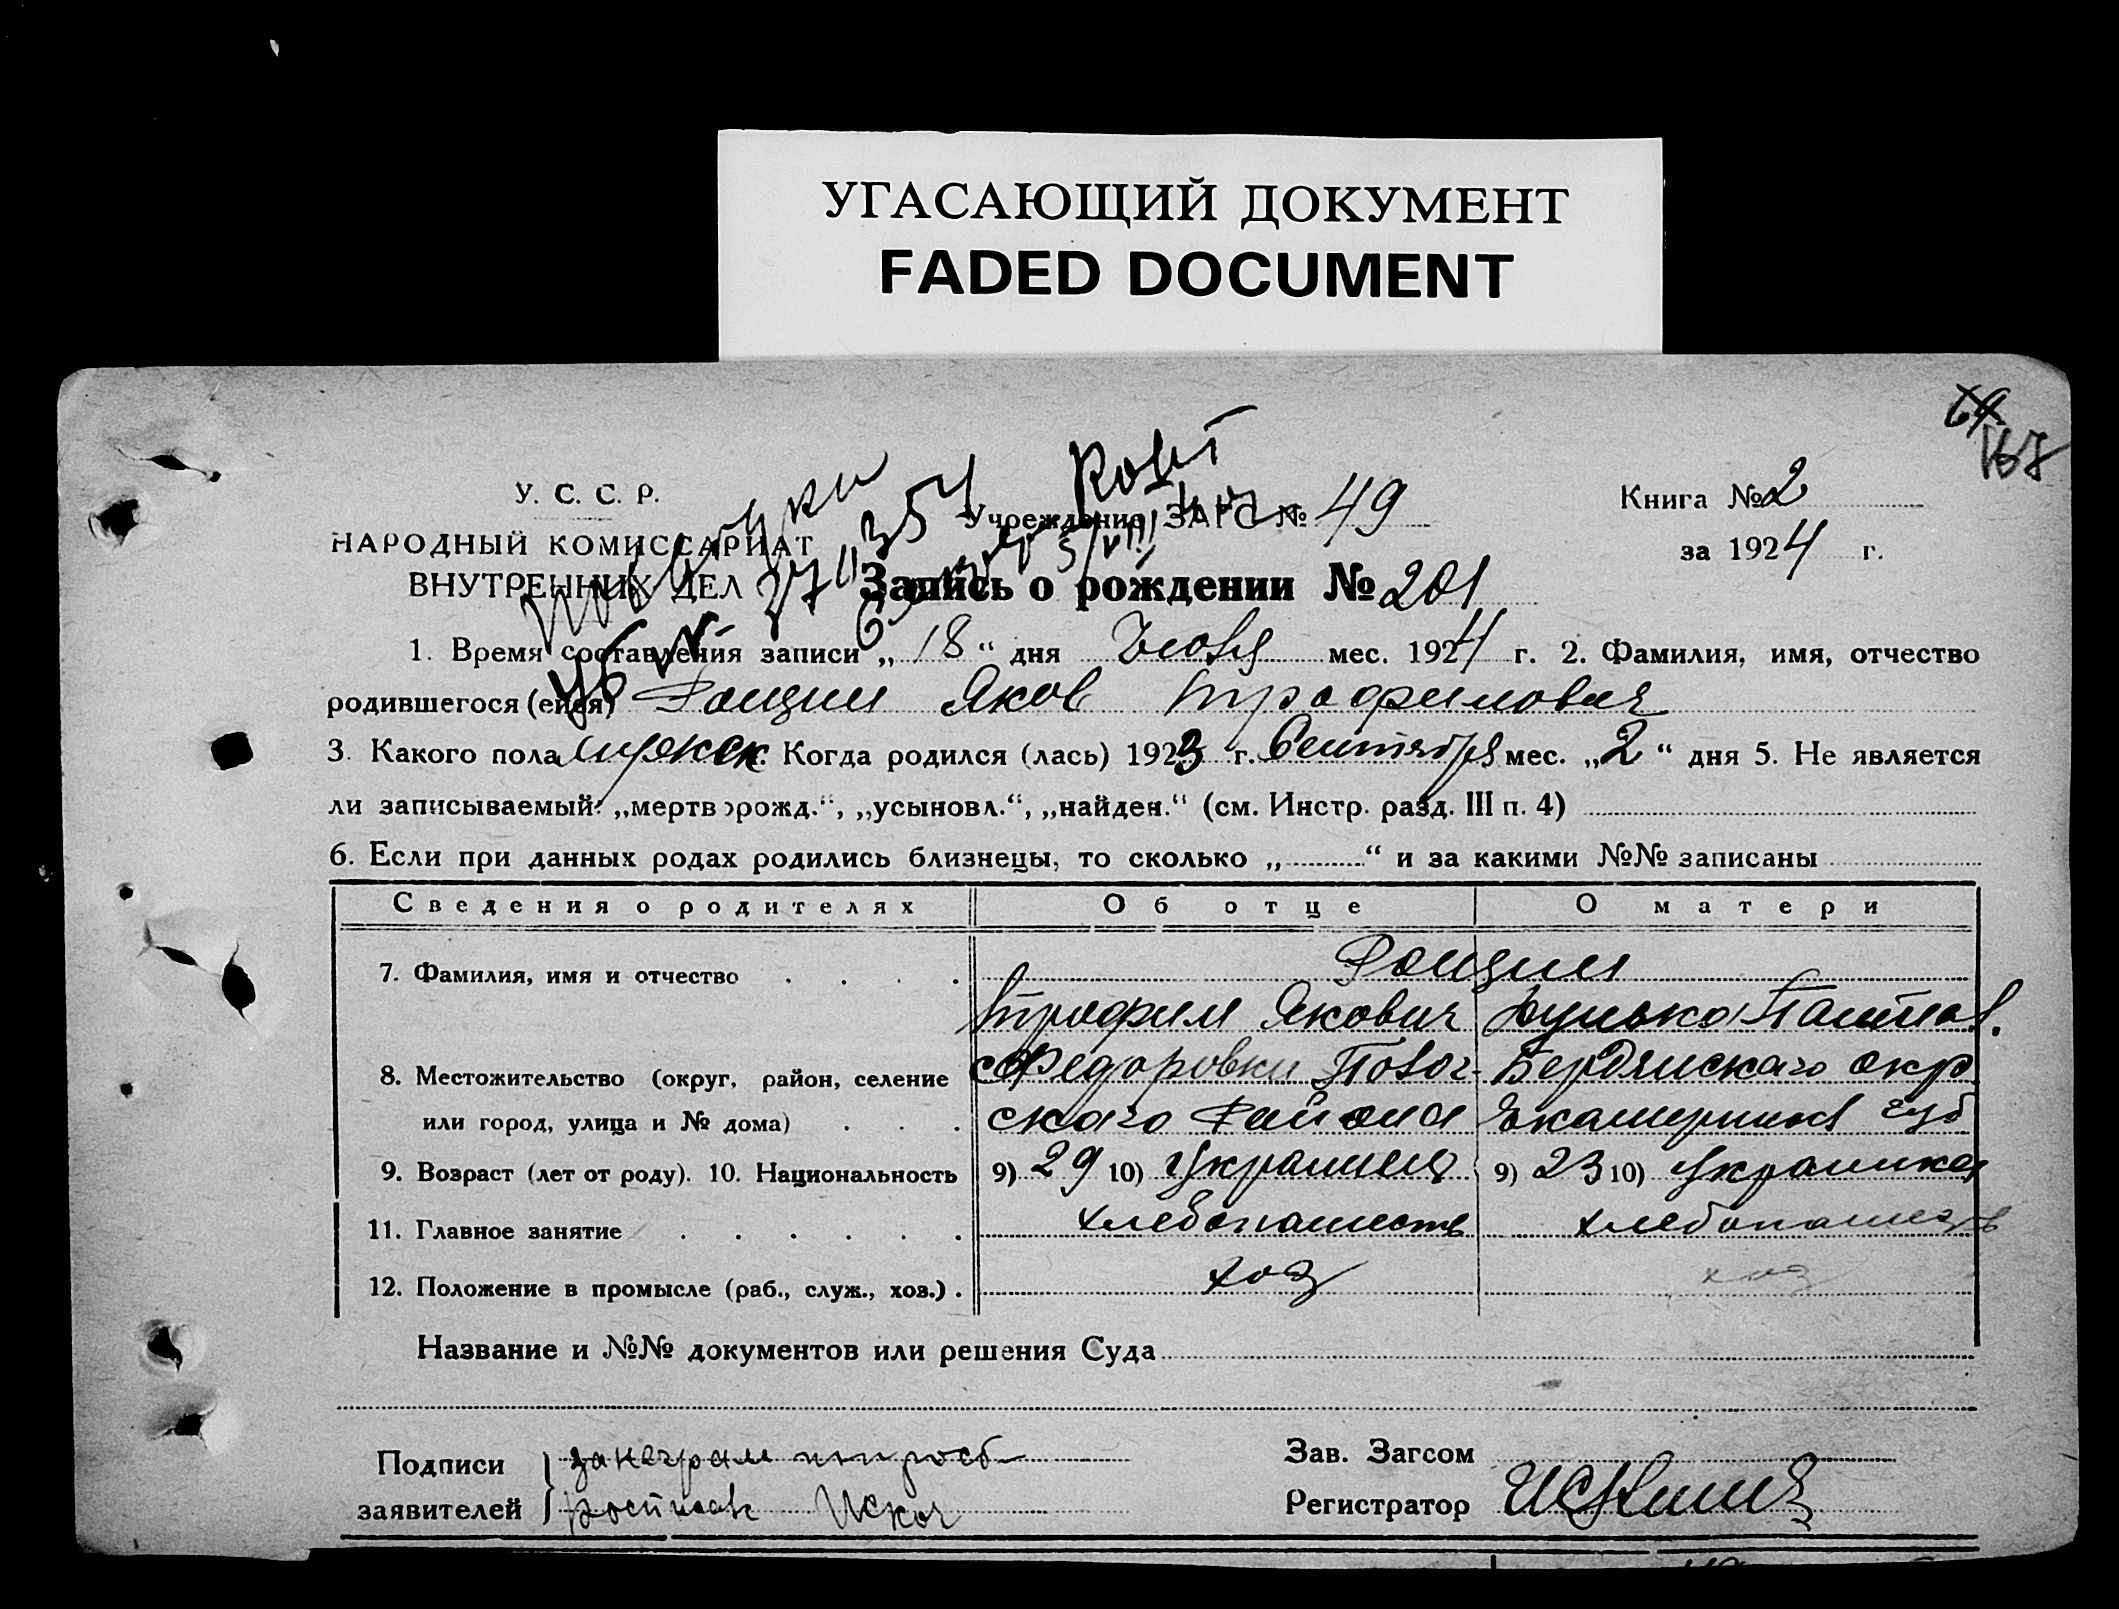 УГАСАЮЩИЙ ДОКУМЕНТ
FADED DOCUMENT
167
У. С. С. Р.
НАРОДНЫЙ КОМИССАРИАТ
ВНУТРЕННИХ ДЕЛ
Учреждение ЗАГС № 49
Книга № 2
за 1924 г.
Запись о рождении № 201
1. Время составления записи „18“ дня Июля мес. 1924 г. 2. Фамилия, имя, отчество
родившегося (ейся) Рощин Яков Трофимович
3. Какого пола мужск. Когда родился (лась) 1923 г. Сентября мес. „2“ дня 5. Не является
ли записываемый: „мертворожд.“, „усыновл.“, „найден.“ (см. Инстр. разд. III п. 4)
6. Если при данных родах родились близнецы, то сколько „ “ и за какими №№ записаны
Сведения о родителях Об отце О матери
7. Фамилия, имя и отчество Рощин
Трофим Якович
8. Местожительство (округ, район, селение с Федоровки Ногог- Бердянскаго окр
или город, улица и № дома) скаго Района Екатеринов губ
9. Возраст (лет от роду). 10. Национальность 9) 29 10) Украинец 9) 23 10) Украинка
11. Главное занятие хлебопашеств хлебопашеств
12. Положение в промысле (раб., служ., хоз.) хоз хоз
Название и №№ документов или решения Суда
Подписи
заявителей
Зав. Загсом
Регистратор